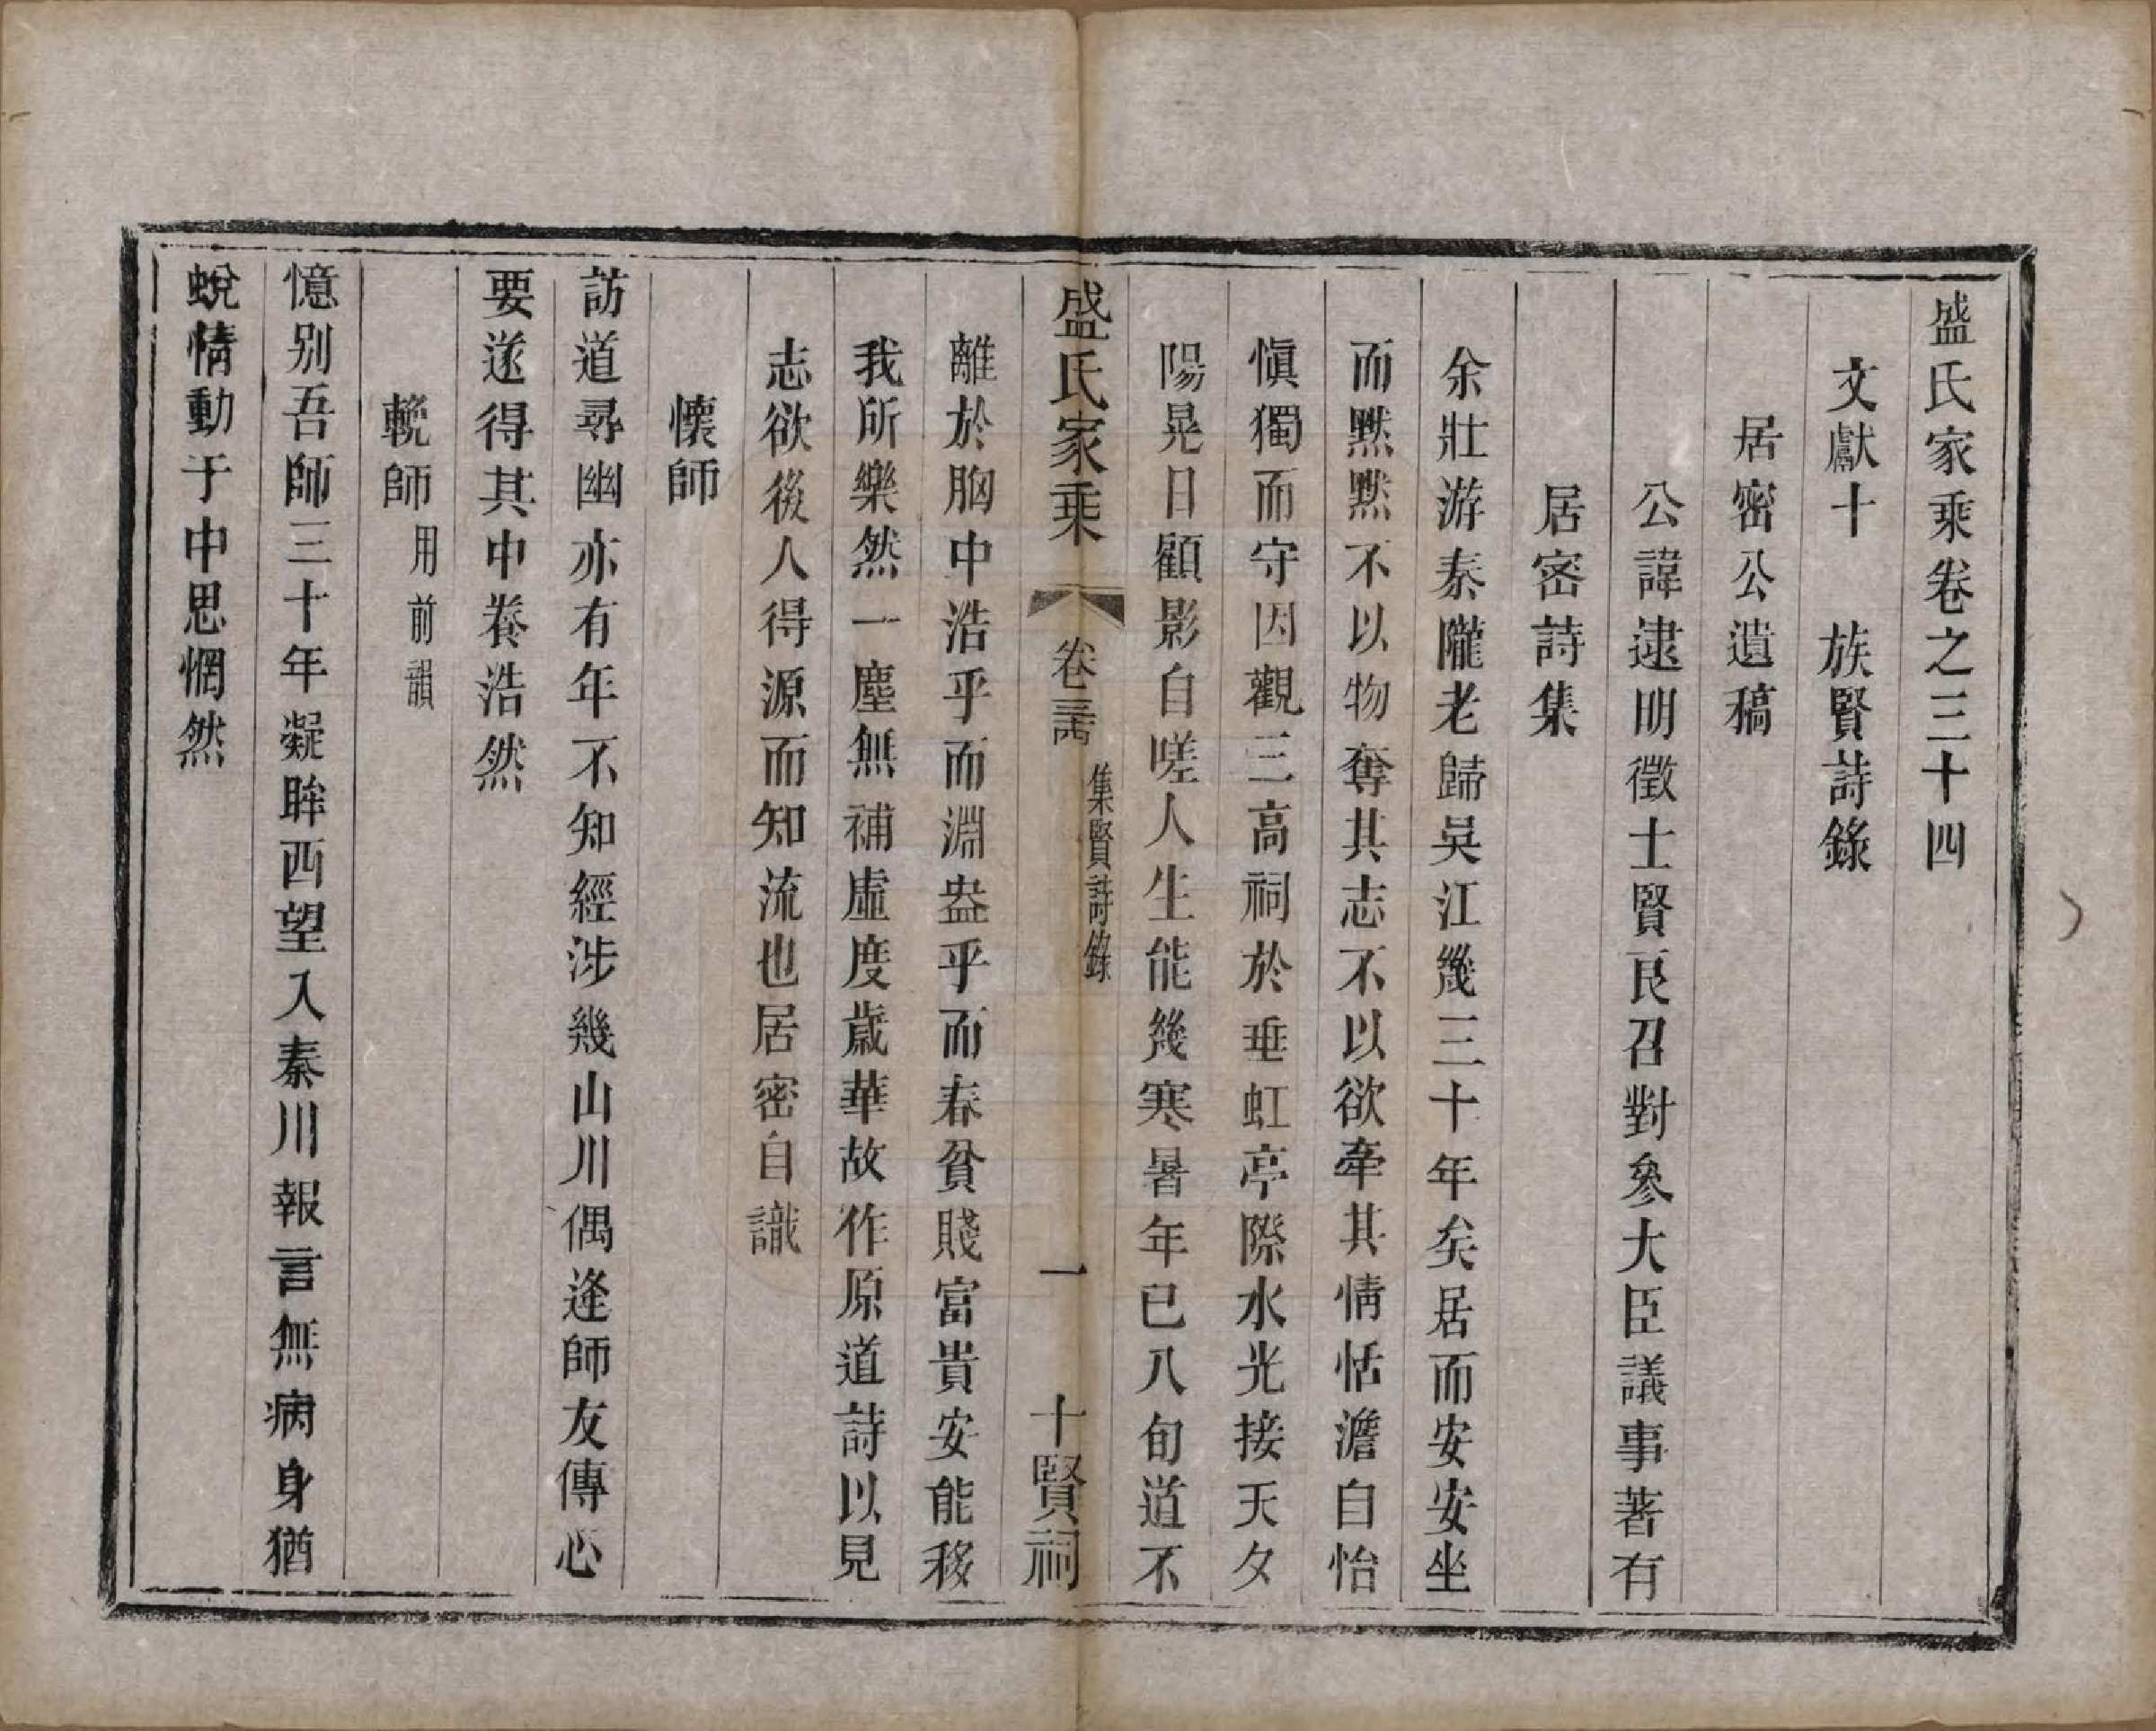 盛氏家乘卷之三十四
文獻十　族賢詩錄
居密公遺稿
公諱逮明徵士賢良召對參大臣議事著有
居密詩集
余壯游秦隴老歸吳江幾三十年矣居而安安坐
而黙黙不以物奪其志不以欲牽其情恬澹自怡
愼獨而守因觀三高祠於垂虹亭際水光接天夕
陽晃日顧影自嗟人生能幾寒暑年已八旬道不
盛氏家乘　卷三十四　集賢詩錄　一　十賢祠
離於胸中浩乎而淵盎乎而春貧賤富貴安能移
我所樂然一塵無補虛度歲華故作原道詩以見
志欲後人得源而知流也居密自識
懷師
訪道尋幽亦有年不知經涉幾山川偶逢師友傳心
要遂得其中養浩然
輓師用前韻
憶别吾師三十年凝眸西望入秦川報言無病身猶
蛻情動于中思惘然